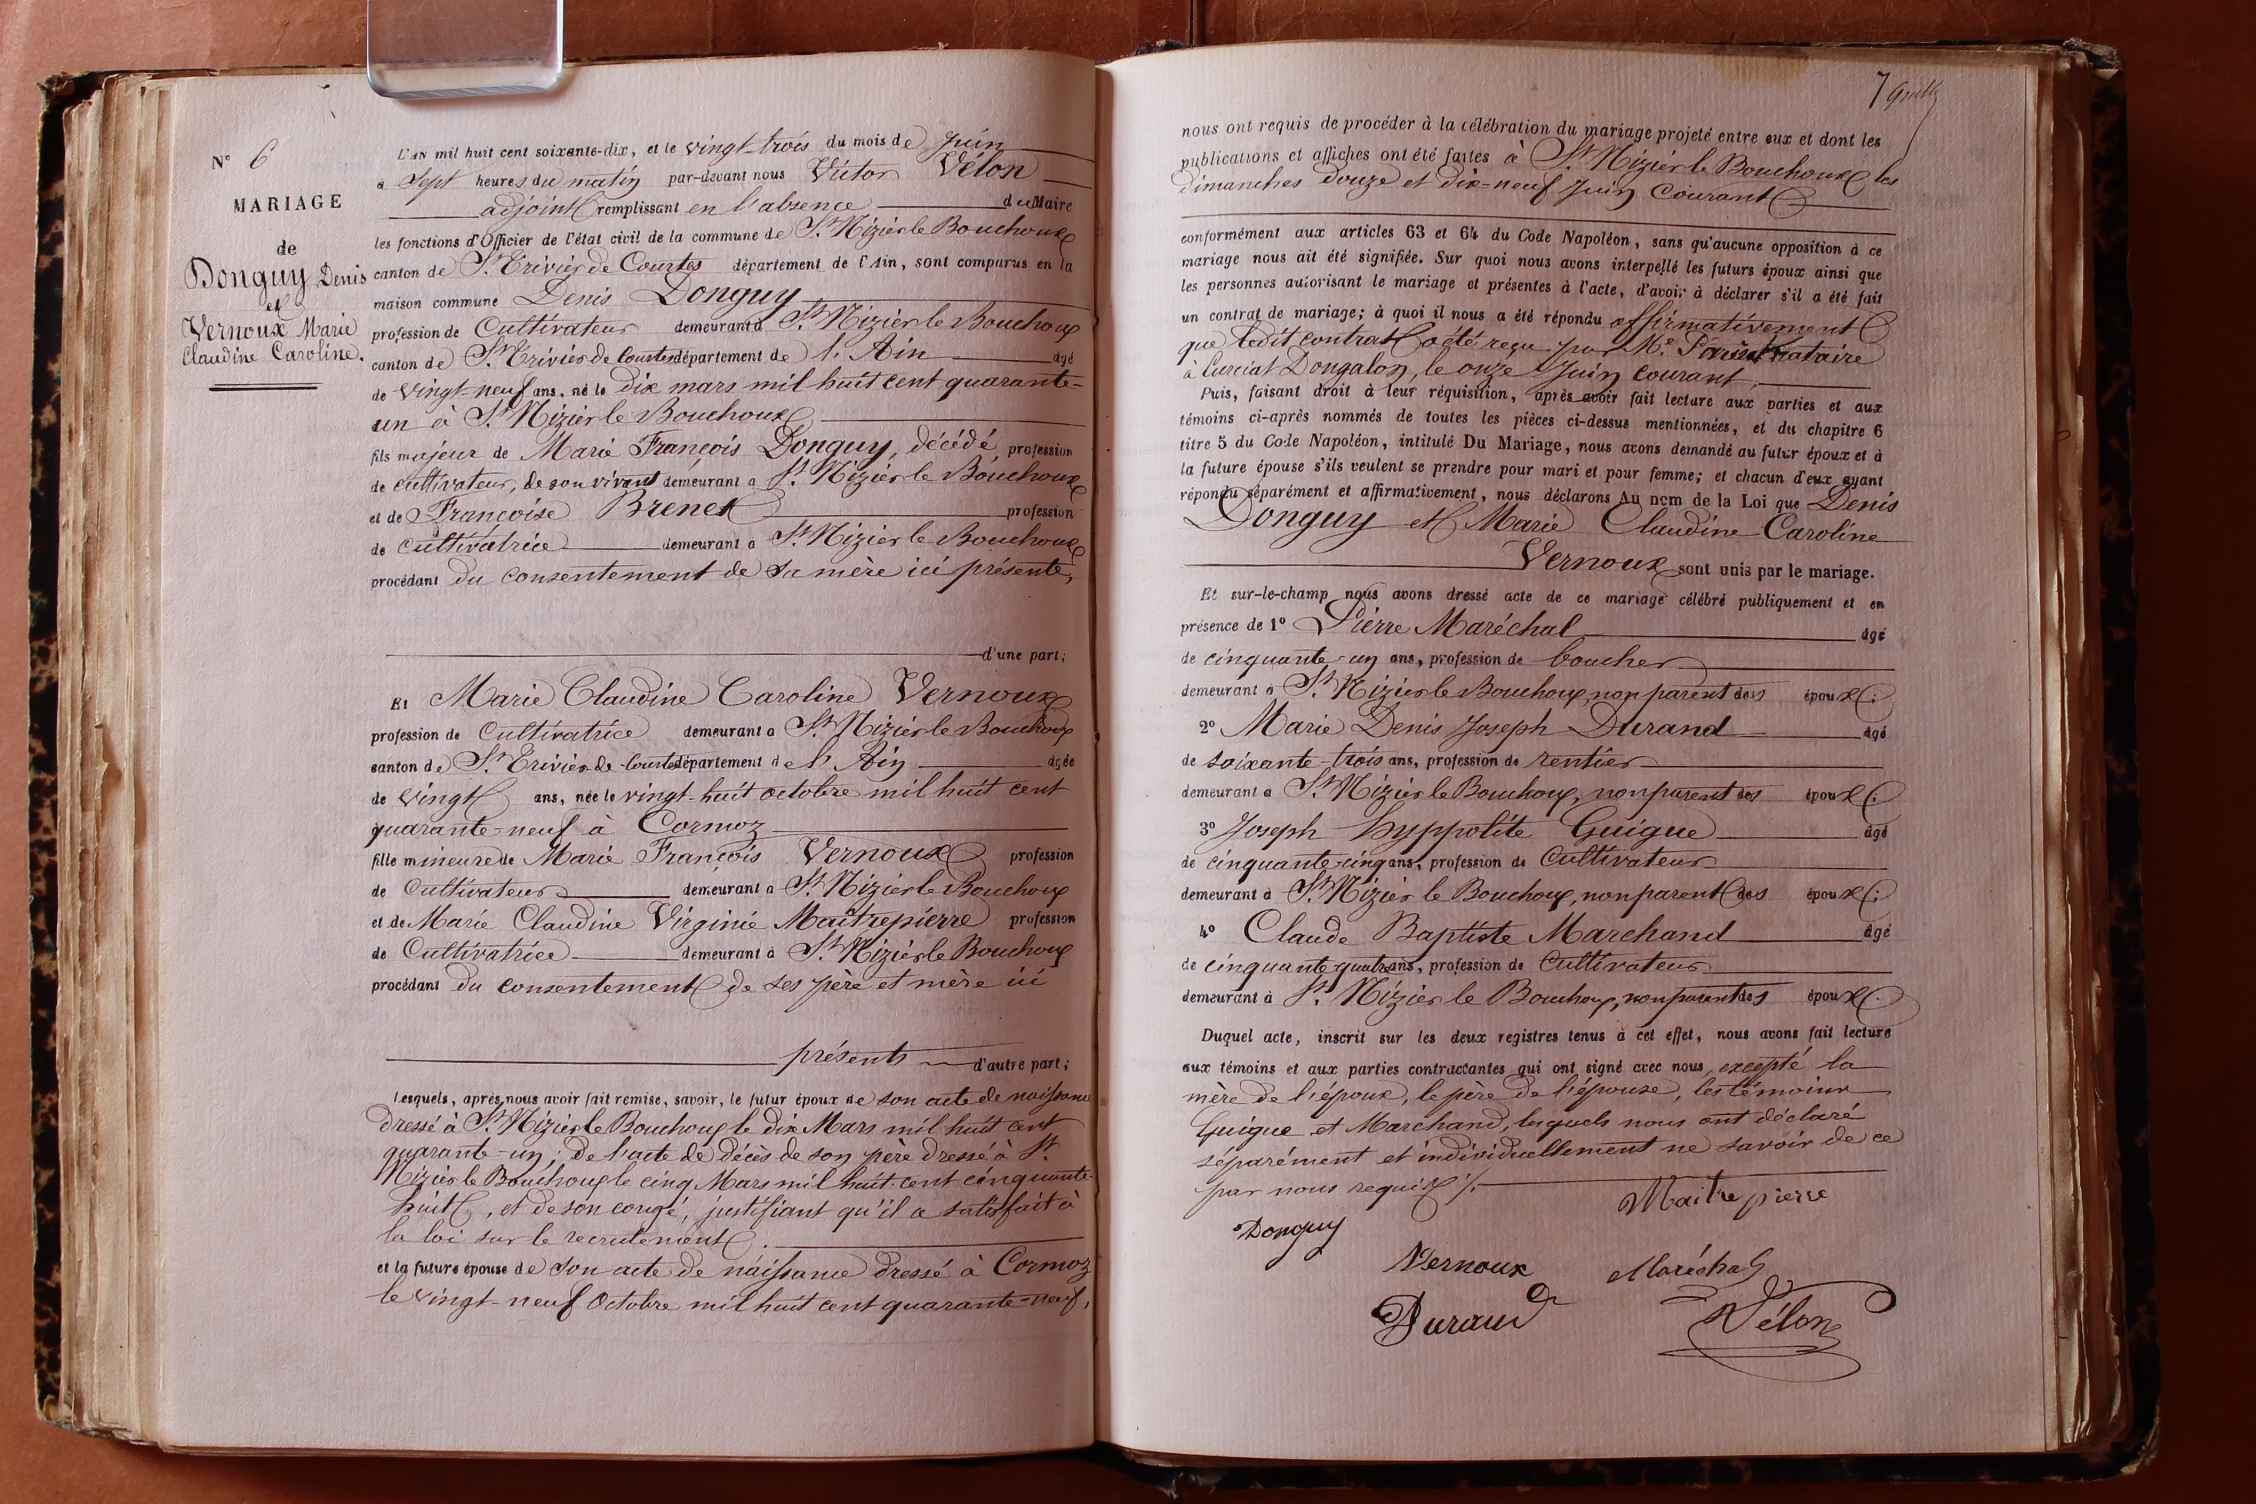 N° 6
MARIAGE
de
Donguy Denis
et
Vernoux Marie
Claudine Caroline.
L'AN mil huit cent soixante-dix, et le vingt-trois du mois de Juin
à sept heures du matin par-devant nous Victor Vélon
adjoint remplissant en l'absence du Maire
les fonctions d'Officier de l'état civil de la commune de St Nizier le Bouchoux
canton de St Trivier de Courtes département de l'Ain, sont comparus en la
maison commune Denis Donguy
profession de Cultivateur demeurant à St Nizier le Bouchoux
canton de St Trivier de Courtes département de l'Ain âgé
de vingt-neuf ans, né le dix mars mil huit cent quarante-
un à St Nizier le Bouchoux
fils majeur de Marie François Donguy, décédé, profession
de cultivateur, de son vivant demeurant à St Nizier le Bouchoux
et de Françoise Brenet profession
de cultivatrice demeurant à St Nizier le Bouchoux
procédant du consentement de sa mère ici présente,
d'une part;
Et Marie Claudine Caroline Vernoux
profession de Cultivatrice demeurant à St Nizier le Bouchoux
canton de St Trivier de Courtes département de l'Ain âgée
de vingt ans, née le vingt-huit octobre mil huit cent
quarante-neuf à Cormoz
fille mineure de Marie François Vernoux profession
de Cultivateur demeurant à St Nizier le Bouchoux
et de Marie Claudine Virginie Maîtrepierre profession
de Cultivatrice demeurant à St Nizier le Bouchoux
procédant du consentement de ses père et mère ici
présents d'autre part;
Lesquels, après nous avoir fait remise, savoir, le futur époux de son acte de naissance
dressé à St Nizier le Bouchoux le dix Mars mil huit cent
quarante-un; de l'acte de décès de son père dressé à St
Nizier le Bouchoux le cinq Mars mil huit cent cinquante-
huit, et de son congé, justifiant qu'il a satisfait à
la loi sur le recrutement.
et la future épouse de son acte de naissance dressé à Cormoz
le vingt-neuf Octobre mil huit cent quarante-neuf,
7
nous ont requis de procéder à la célébration du mariage projeté entre eux et dont les
publications et affiches ont été faites à St Nizier le Bouchoux les
dimanches douze et dix-neuf Juin courant
conformément aux articles 63 et 64 du Code Napoléon, sans qu'aucune opposition à ce
mariage nous ait été signifiée. Sur quoi nous avons interpellé les futurs époux ainsi que
les personnes autorisant le mariage et présentes à l'acte, d'avoir à déclarer s'il a été fait
un contrat de mariage; à quoi il nous a été répondu affirmativement
que ledit contrat a été reçu par Me notaire
à Curciat Dongalon, le onze Juin courant,
Puis, faisant droit à leur réquisition, après avoir fait lecture aux parties et aux
témoins ci-après nommés de toutes les pièces ci-dessus mentionnées, et du chapitre 6
titre 5 du Code Napoléon, intitulé Du Mariage, nous avons demandé au futur époux et à
la future épouse s'ils veulent se prendre pour mari et pour femme; et chacun d'eux ayant
répondu séparément et affirmativement, nous déclarons Au nom de la Loi que Denis
Donguy et Marie Claudine Caroline
Vernoux sont unis par le mariage.
Et sur-le-champ nous avons dressé acte de ce mariage célébré publiquement et en
présence de 1° Pierre Maréchal âgé
de cinquante-un ans, profession de boucher
demeurant à St Nizier le Bouchoux, non parent des époux;
2° Marie Denis Joseph Durand âgé
de soixante-trois ans, profession de rentier
demeurant à St Nizier le Bouchoux, non parent des époux;
3° Joseph hyppolite Guigue âgé
de cinquante-cinq ans, profession de Cultivateur
demeurant à St Nizier le Bouchoux, non parent des époux;
4° Claude Baptiste Marchand âgé
de cinquante-quatre ans, profession de Cultivateur
demeurant à St Nizier le Bouchoux, non parent des époux.
Duquel acte, inscrit sur les deux registres tenus à cet effet, nous avons fait lecture
aux témoins et aux parties contractantes qui ont signé avec nous, excepté la
mère de l'époux, le père de l'épouse, les témoins
Guigue et Marchand, lesquels nous ont déclaré
séparément et individuellement ne savoir de ce
par nous requis /.
Maitrepierre
Donguy
Vernoux
Maréchal
Durand
Vélon